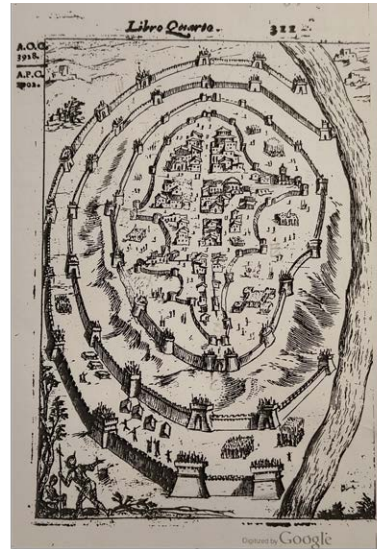 Libro Quarto. 311
A.O.C.
3918.
A.P.C.
Digitized by Google